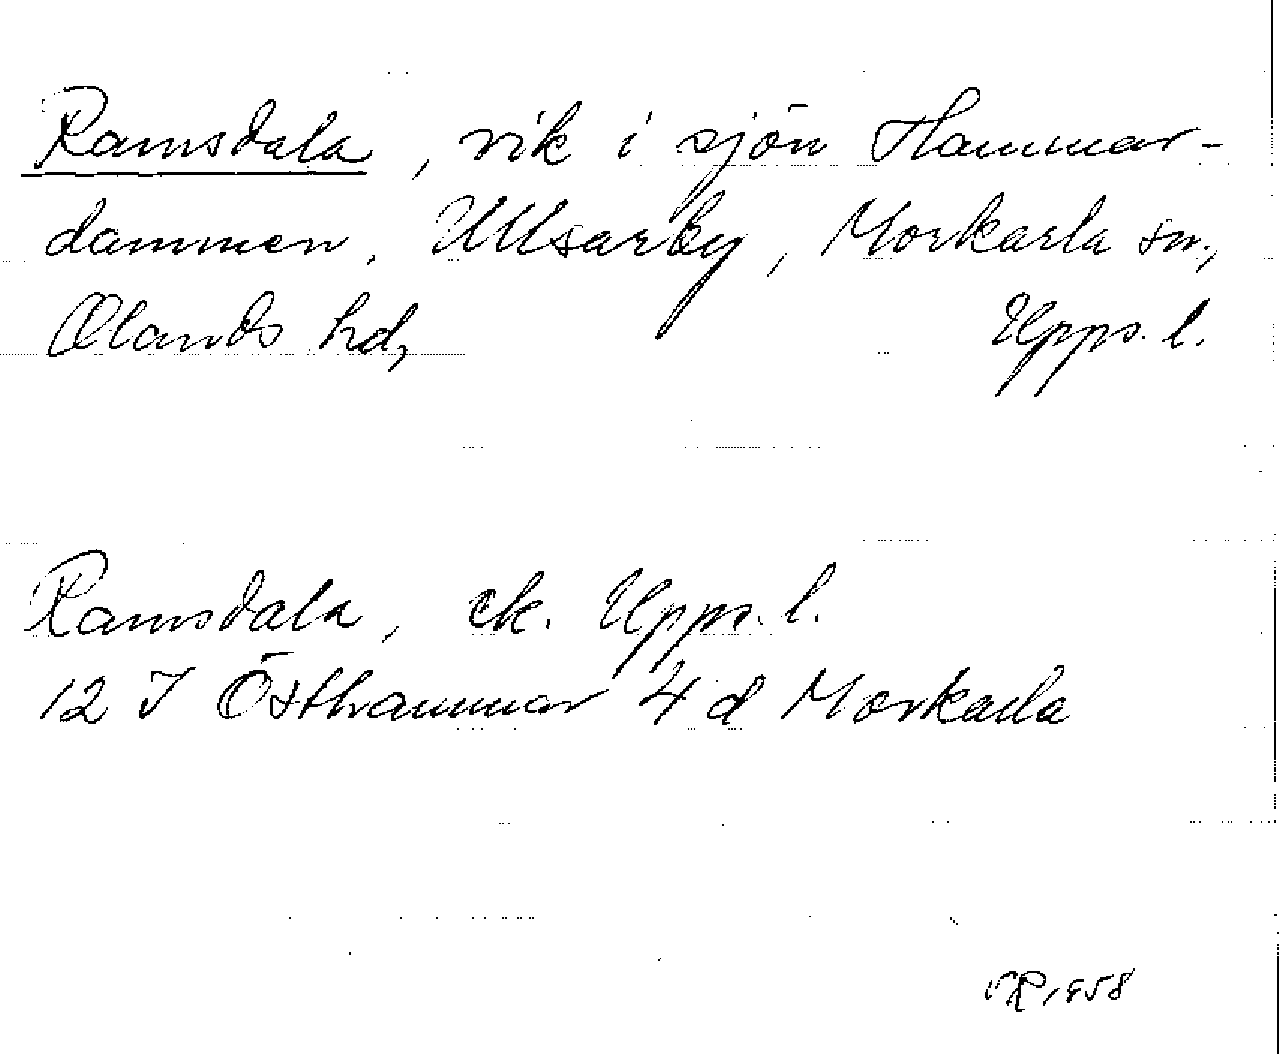 Ramsdala, vik i sjön Hammar-
dammen, Ullsarby, Morkarla sn.,
Olands hd, Upps. l.
Ramsdala, ek. Upps. l.
12 I Östhammar 4 d Morkarla
1958